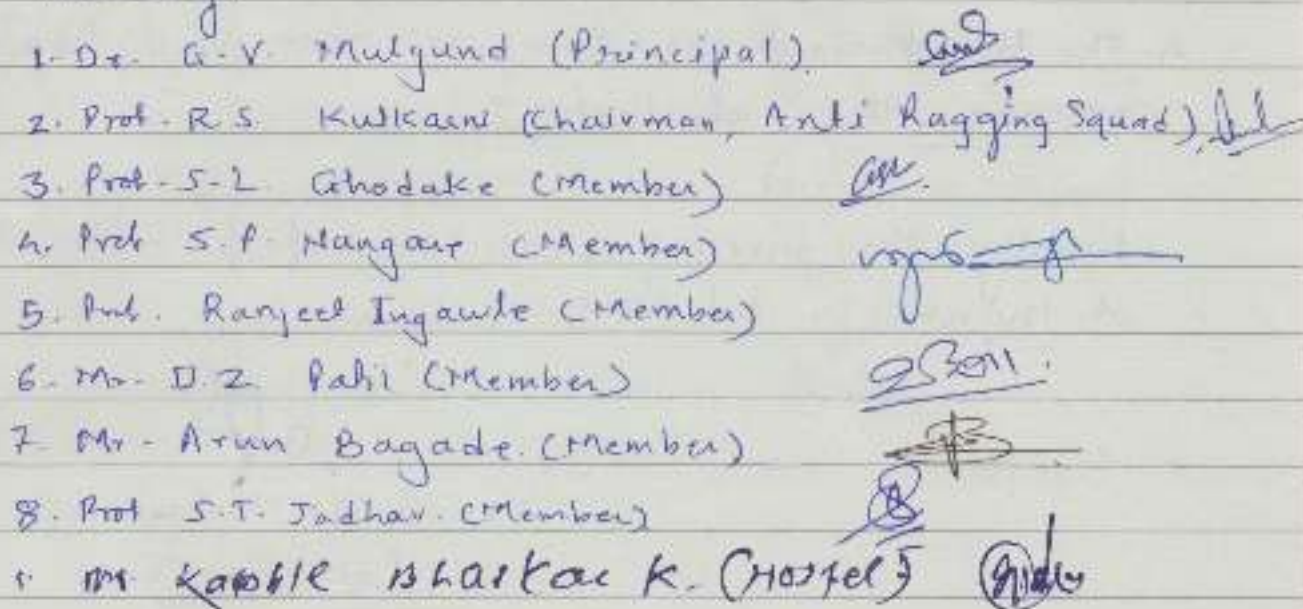 1. Dr. G.V. Mulgund (Principal)
2. Prof. R.S. Kulkarni (Chairman, Anti Ragging Squad)
3. Prof. S.L. Ghodake (Member)
4. Prof. S.P. Nangare (Member)
5. Prof. Ranjeet Ingawle (Member)
6. Mr. D.Z. Patil (Member)
7. Mr. Arun Bagade. (Member)
8. Prof S.T. Jadhav. (Member)
Mr Kamble Bhaskar K. (Hostel)